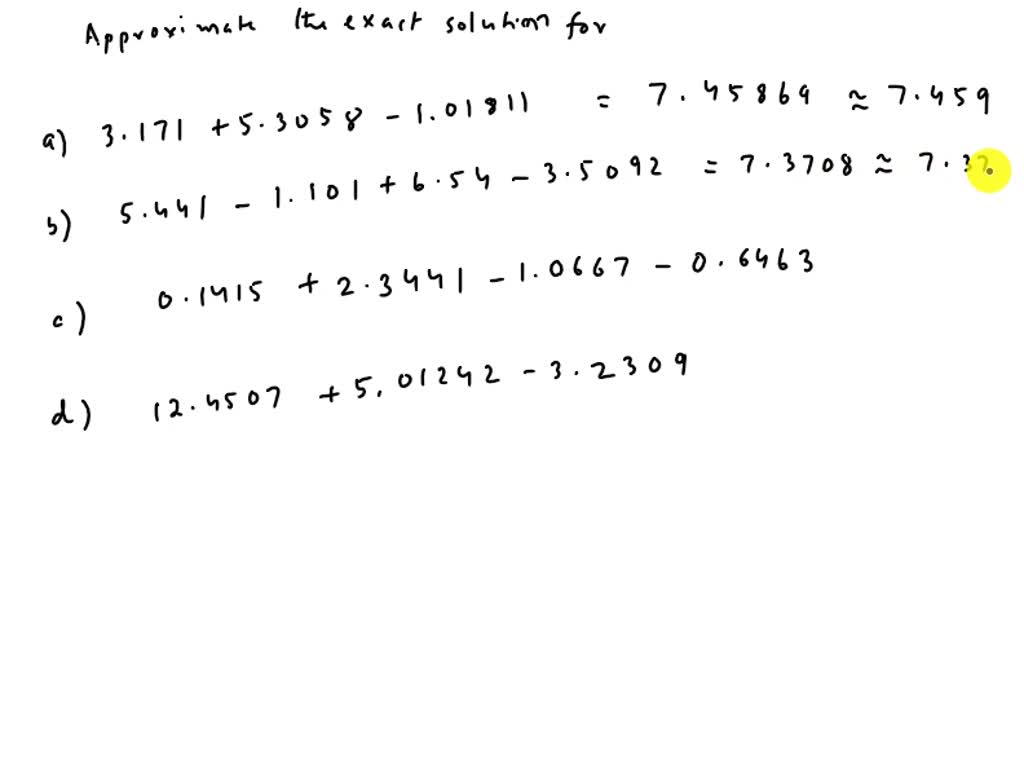 Approximate the exact solution for
a) 3.171 + 5.3058 - 1.01811 = 7.45869 ≈ 7.459
b) 5.441 - 1.101 + 6.54 - 3.5092 = 7.3708 ≈ 7.37
c) 0.1415 + 2.3441 - 1.0667 - 0.6463
d) 12.4507 + 5.01242 - 3.2309